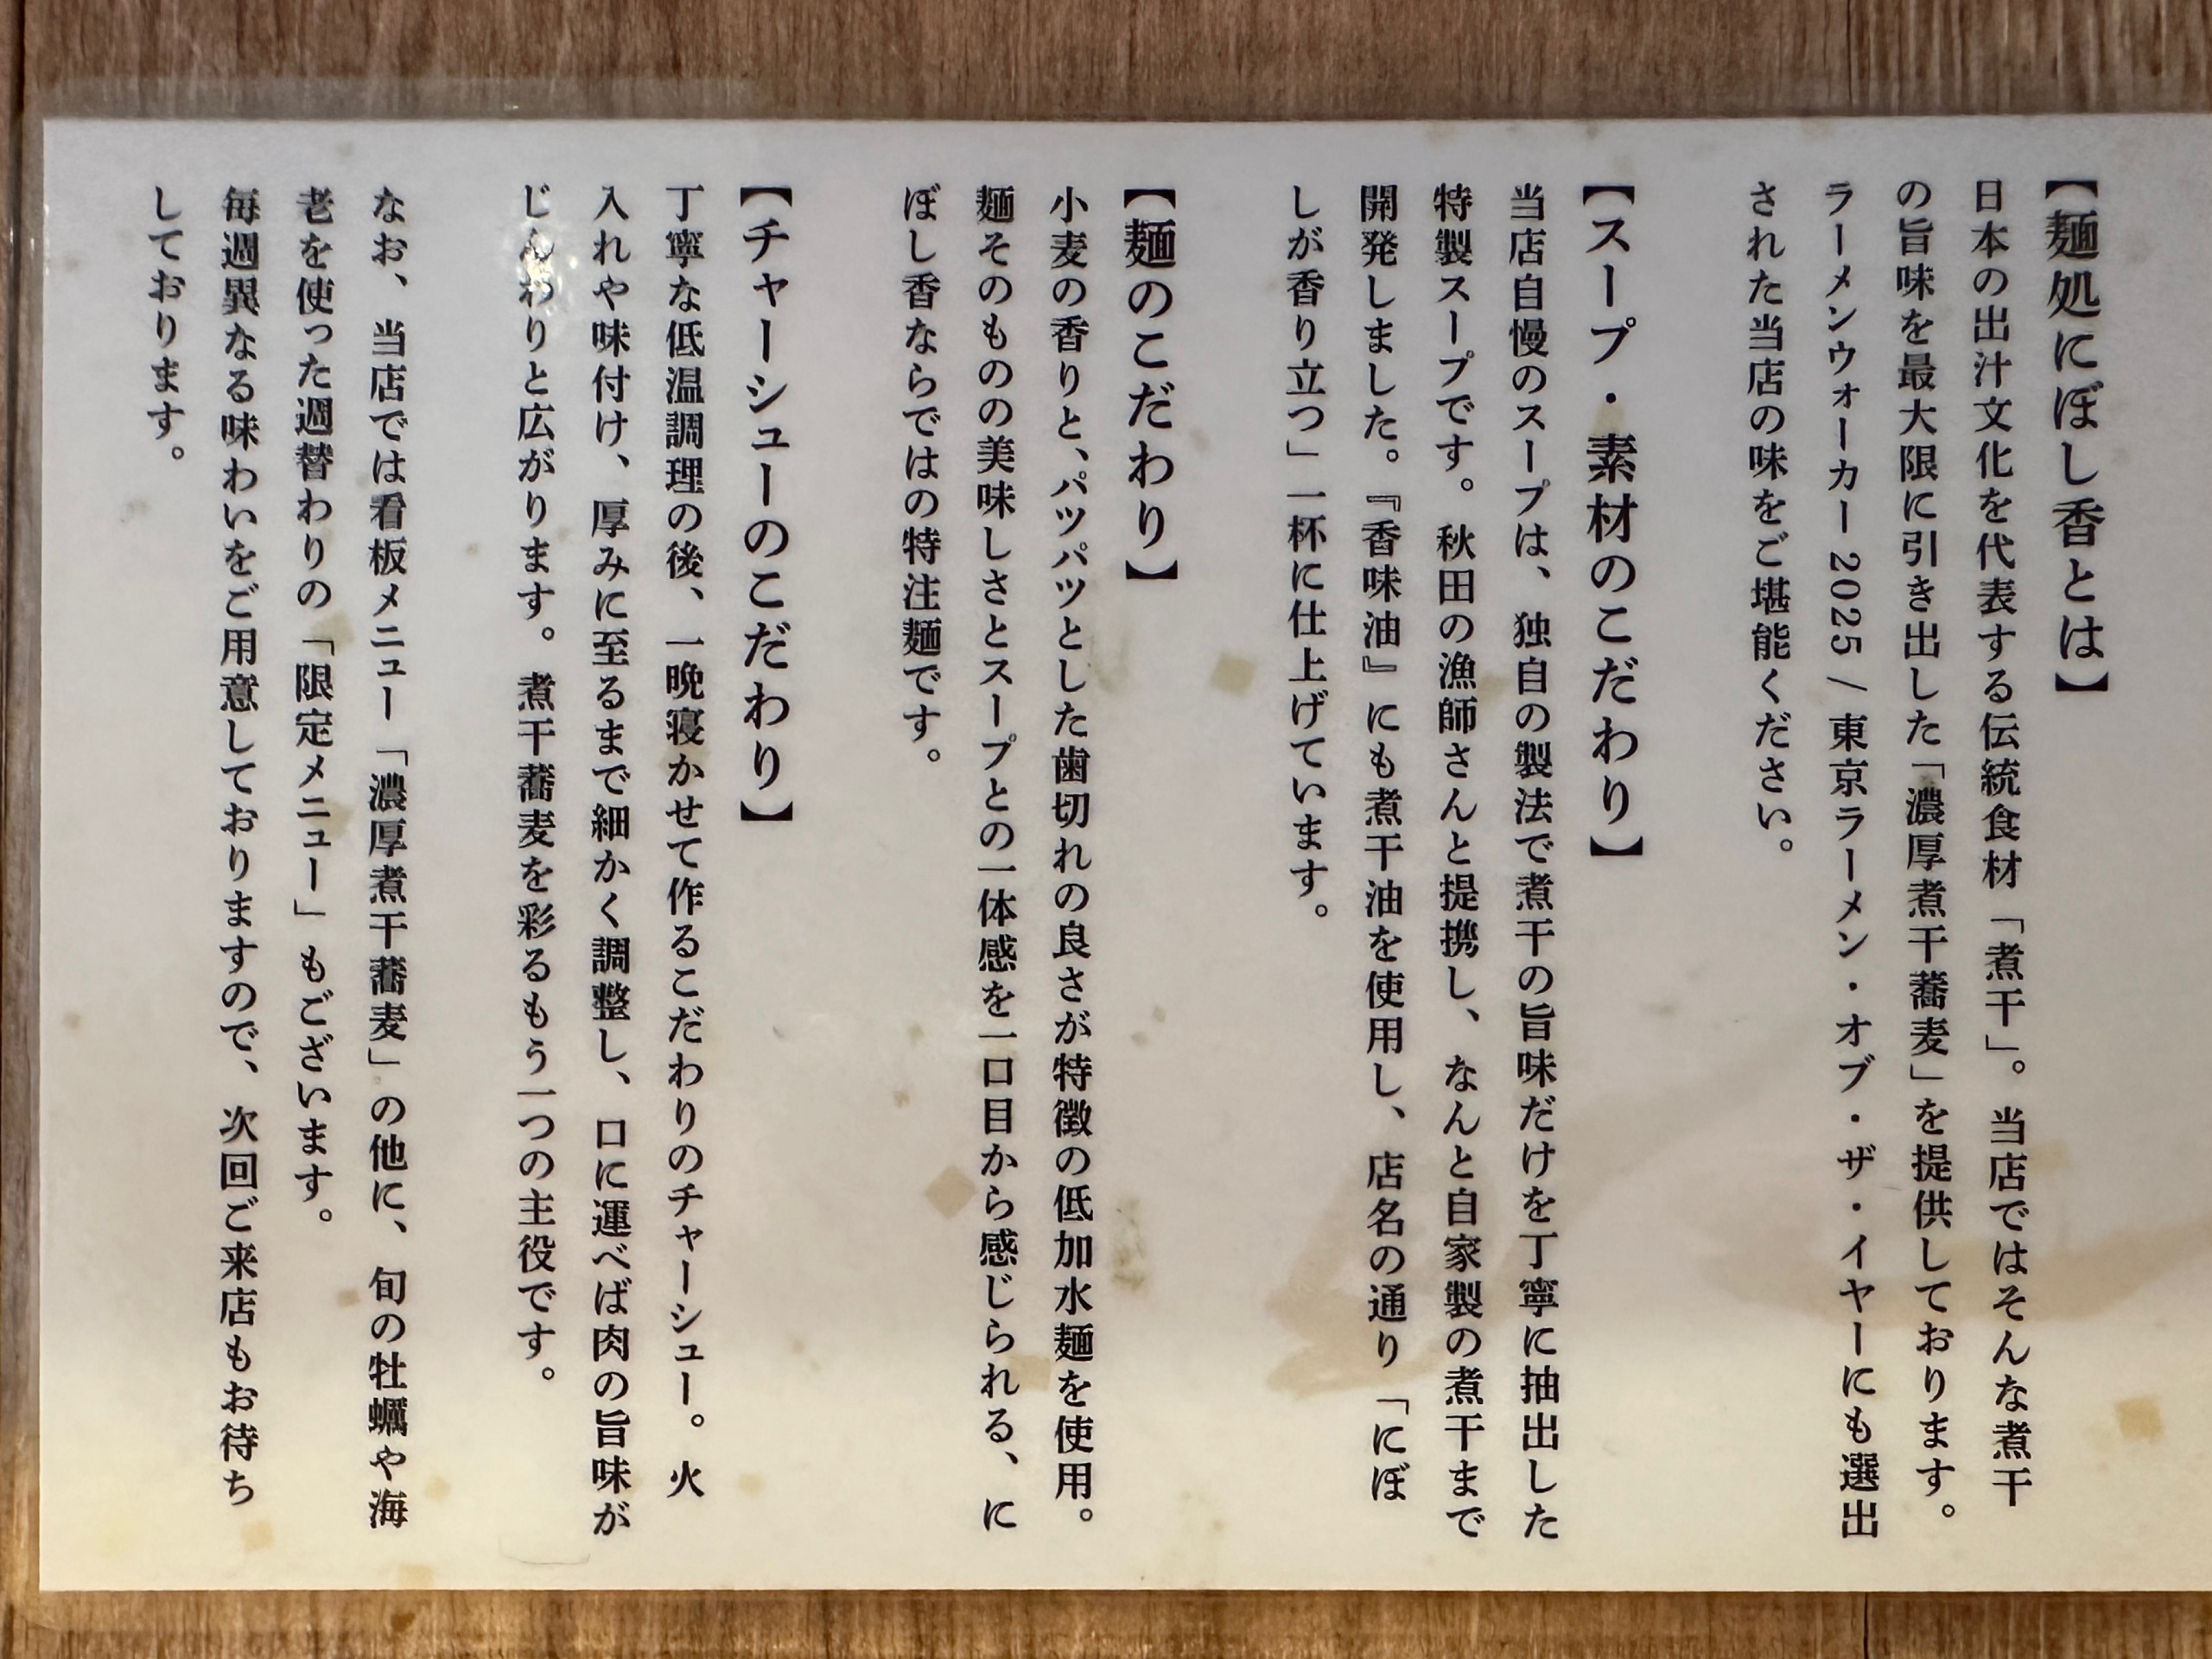 【麺処にぼし香とは】
日本の出汁文化を代表する伝統食材「煮干」。当店ではそんな煮干
の旨味を最大限に引き出した「濃厚煮干蕎麦」を提供しております。
ラーメンウォーカー 2025 / 東京ラーメン・オブ・ザ・イヤーにも選出
された当店の味をご堪能ください。
【スープ・素材のこだわり】
当店自慢のスープは、独自の製法で煮干の旨味だけを丁寧に抽出した
特製スープです。秋田の漁師さんと提携し、なんと自家製の煮干まで
開発しました。『香味油』にも煮干油を使用し、店名の通り「にぼ
しが香り立つ」一杯に仕上げています。
【麺のこだわり】
小麦の香りと、パツパツとした歯切れの良さが特徴の低加水麺を使用。
麺そのものの美味しさとスープとの一体感を一口目から感じられる、に
ぼし香ならではの特注麺です。
【チャーシューのこだわり】
丁寧な低温調理の後、一晩寝かせて作るこだわりのチャーシュー。火
入れや味付け、厚みに至るまで細かく調整し、口に運べば肉の旨味が
じんわりと広がります。煮干蕎麦を彩るもう一つの主役です。
なお、当店では看板メニュー「濃厚煮干蕎麦」の他に、旬の牡蠣や海
老を使った週替わりの「限定メニュー」もございます。
毎週異なる味わいをご用意しておりますので、次回ご来店もお待ち
しております。